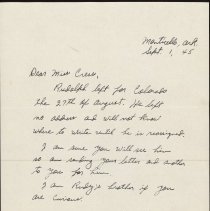 Monticello, Ark
Sept 1, 45
Dear Miss Crews,
Rudolph left for Colorado
the 27th of August. He left
no address and will not know
where to write until he is reassigned.
I am sure you will see him
so am sending your letter and another
to you for him.
I am Rudy's brother if you
are curious.